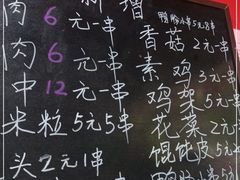 新增
鸭胗小串5元8串
肉6元一串
香菇2元一串
肉6元一串
素鸡3元一串
中12元一串
鸡架5元
米粒5元5串
花菜2元
头2元1串
馄饨皮5元